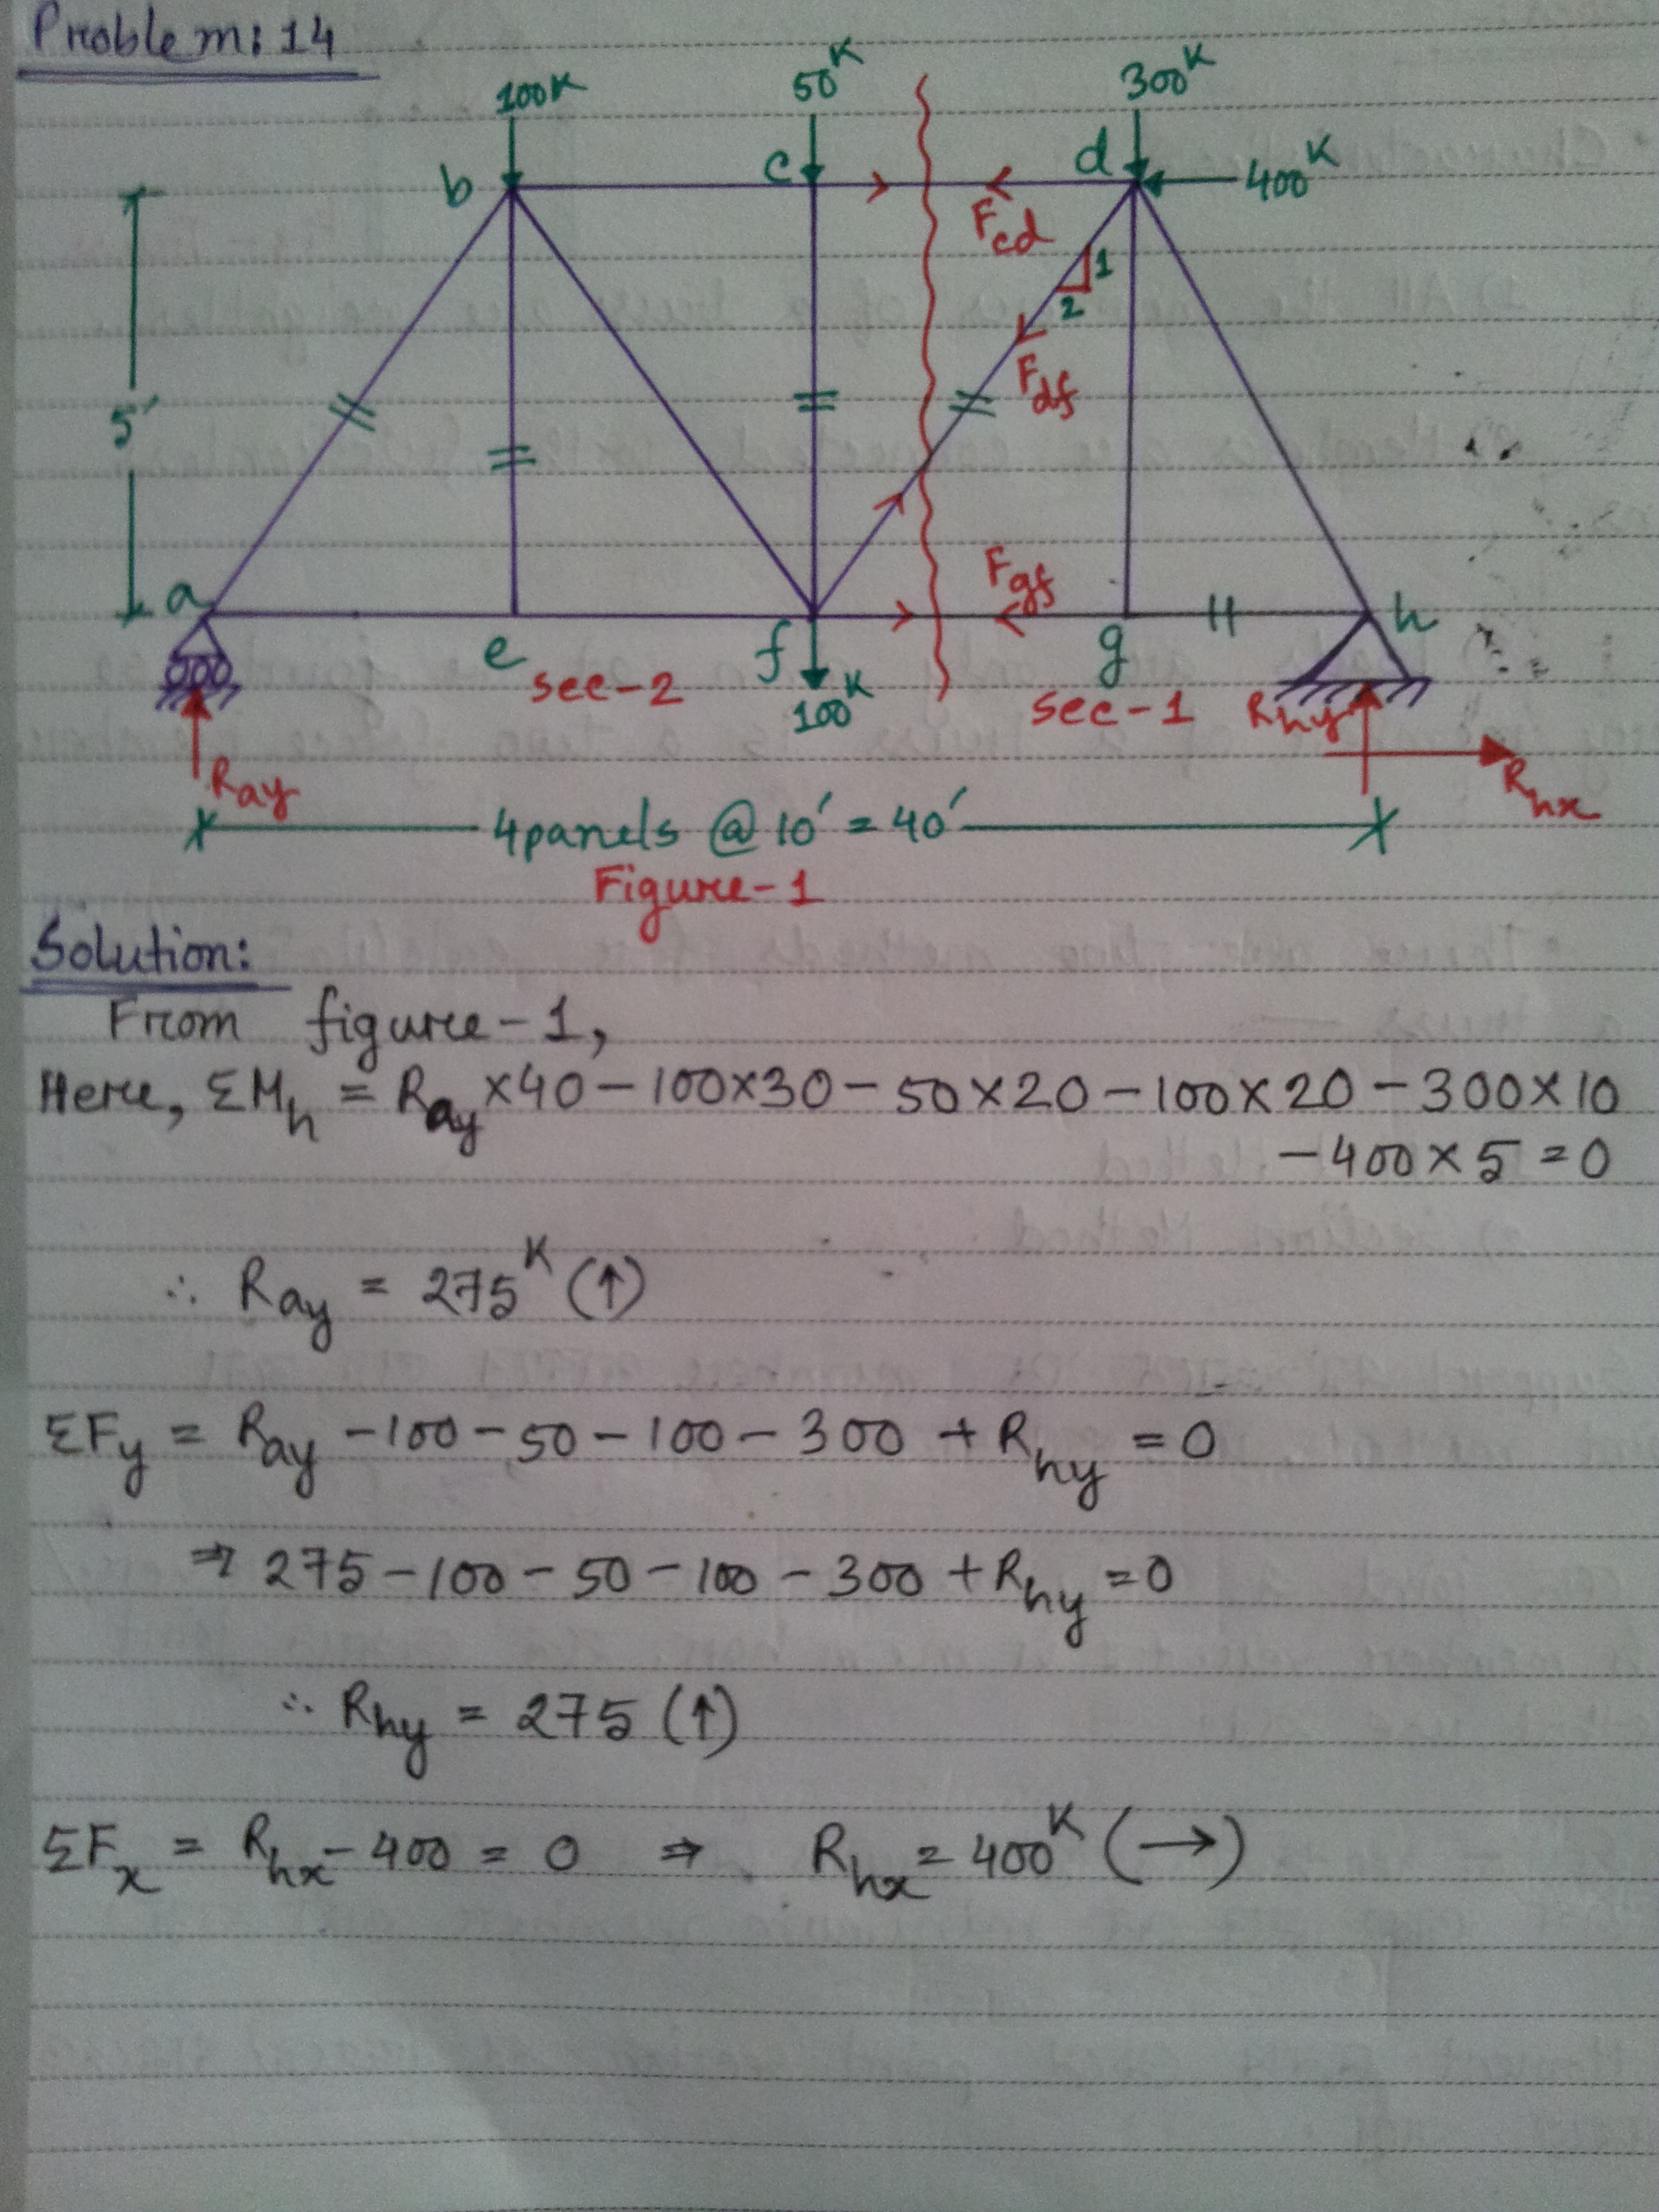 Problem: 14
100K
50K
300K
b
c
d
400K
Fcd
1
2
5'
Fdf
Fgf
a
e
f
g
h
sec-2
100K
sec-1
Rhy
Ray
Rhx
4panels @ 10' = 40'
Figure-1
Solution:
From figure-1,
Here, ΣMh = Ray×40-100×30-50×20-100×20-300×10
-400×5=0
∴ Ray = 275K (↑)
ΣFy = Ray -100-50-100-300 +Rhy =0
⇒ 275-100-50-100-300+Rhy=0
∴ Rhy = 275 (↑)
ΣFx = Rhx-400 = 0 ⇒ Rhx=400K (→)